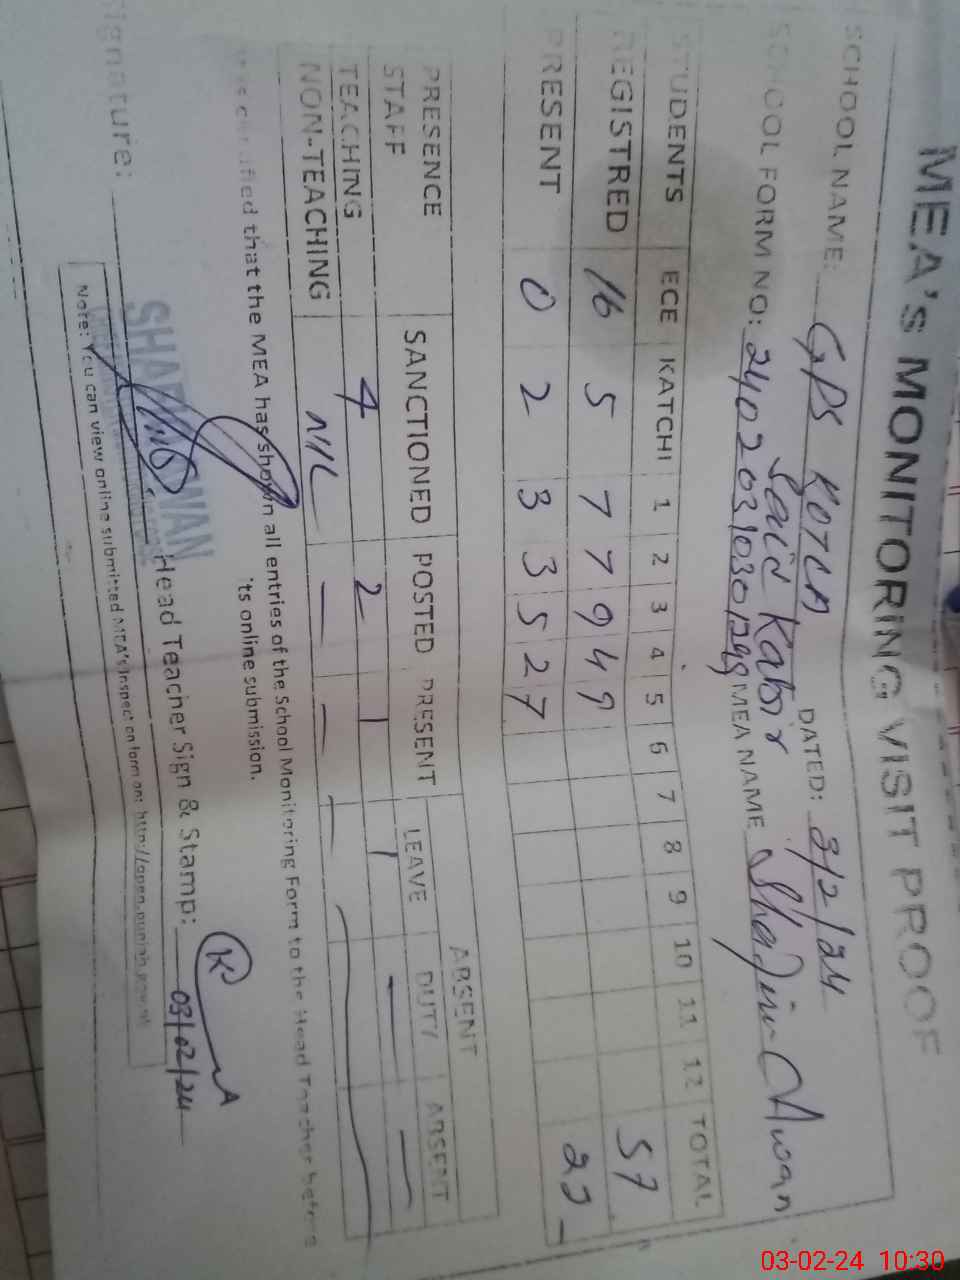 MEA's MONITORING VISIT PROOF
SCHOOL NAME: GPS KOTLA DATED: 3/2/24
Said Kabir
SCHOOL FORM NO: MEA NAME
STUDENTS ECE KATCHI 1 2 3 4 5 6 7 8 9 10 11 12 TOTAL
REGISTRED 16 5 7 7 9 4 9 57
PRESENT 0 2 3 3 5 2 7
PRESENCE SANCTIONED POSTED PRESENT ABSENT
STAFF LEAVE DUTY ABSENT
TEACHING 4 2 1 1 — —
NON-TEACHING NIL — — —
certified that the MEA has shown all entries of the School Monitoring Form to the Head Teacher before
its online submission.
Signature: Head Teacher Sign & Stamp: 03/02/24
Note: You can view online submitted MEA's Inspection form on: http://open.punjab.gov.pk
03-02-24 10:30